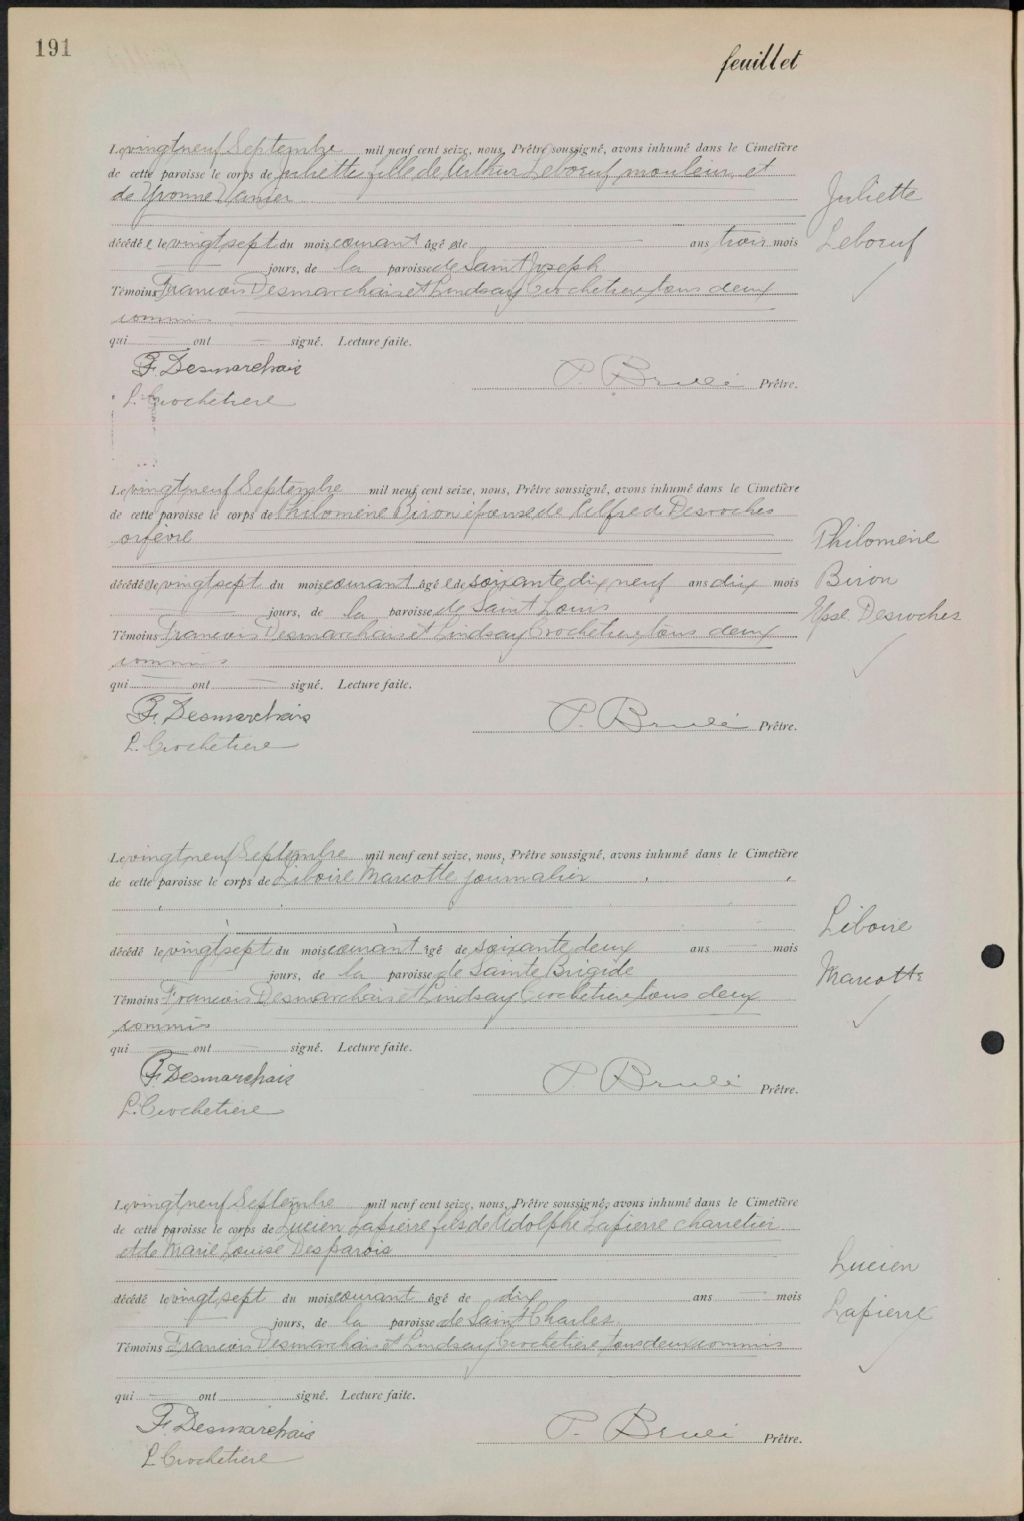 191
feuillet
Le vingt neuf Septembre mil neuf cent seize, nous, Prêtre soussigné, avons inhumé dans le Cimetière
de cette paroisse le corps de Juliette fille de Arthur Leboeuf mouleur, et
de Yvonne Vanier
Juliette
décédée le vingt sept du mois courant âgé de ans, trois mois
Leboeuf
jours, de la paroisse de Saint Joseph
Témoins Francois Desmarchais et Lindsay Crochetiere tous deux
commis
qui ont signé. Lecture faite.
F. Desmarchais
P. Brulé Prêtre.
L. Crochetiere
Le vingt neuf Septembre mil neuf cent seize, nous, Prêtre soussigné, avons inhumé dans le Cimetière
de cette paroisse le corps de Philomène Biron épouse de Alfred Desroches
orfèvre
Philomène
décédée le vingt sept du mois courant âgée de soixante dix neuf ans dix mois
Biron
jours, de la paroisse de Saint Louis
Epse Desroches
Témoins Francois Desmarchais et Lindsay Crochetiere tous deux
commis
qui ont signé. Lecture faite.
F. Desmarchais
P. Brulé Prêtre.
L. Crochetiere
Le vingt neuf Septembre mil neuf cent seize, nous, Prêtre soussigné, avons inhumé dans le Cimetière
de cette paroisse le corps de Liboire Marcotte journalier
Liboire
décédé le vingt sept du mois courant âgé de soixante deux ans mois
jours, de la paroisse de Sainte Brigide
Marcotte
Témoins Francois Desmarchais et Lindsay Crochetiere tous deux
commis
qui ont signé. Lecture faite.
F. Desmarchais
P. Brulé Prêtre.
L. Crochetiere
Le vingt neuf Septembre mil neuf cent seize, nous, Prêtre soussigné, avons inhumé dans le Cimetière
de cette paroisse le corps de Lucien Lapierre fils de Adolphe Lapierre charretier
et de Marie Louise Desparois
Lucien
décédé le vingt sept du mois courant âgé de dix ans mois
Lapierre
jours, de la paroisse de Saint Charles
Témoins Francois Desmarchais et Lindsay Crochetiere tous deux commis
qui ont signé. Lecture faite.
F. Desmarchais
P. Brulé Prêtre.
L. Crochetiere